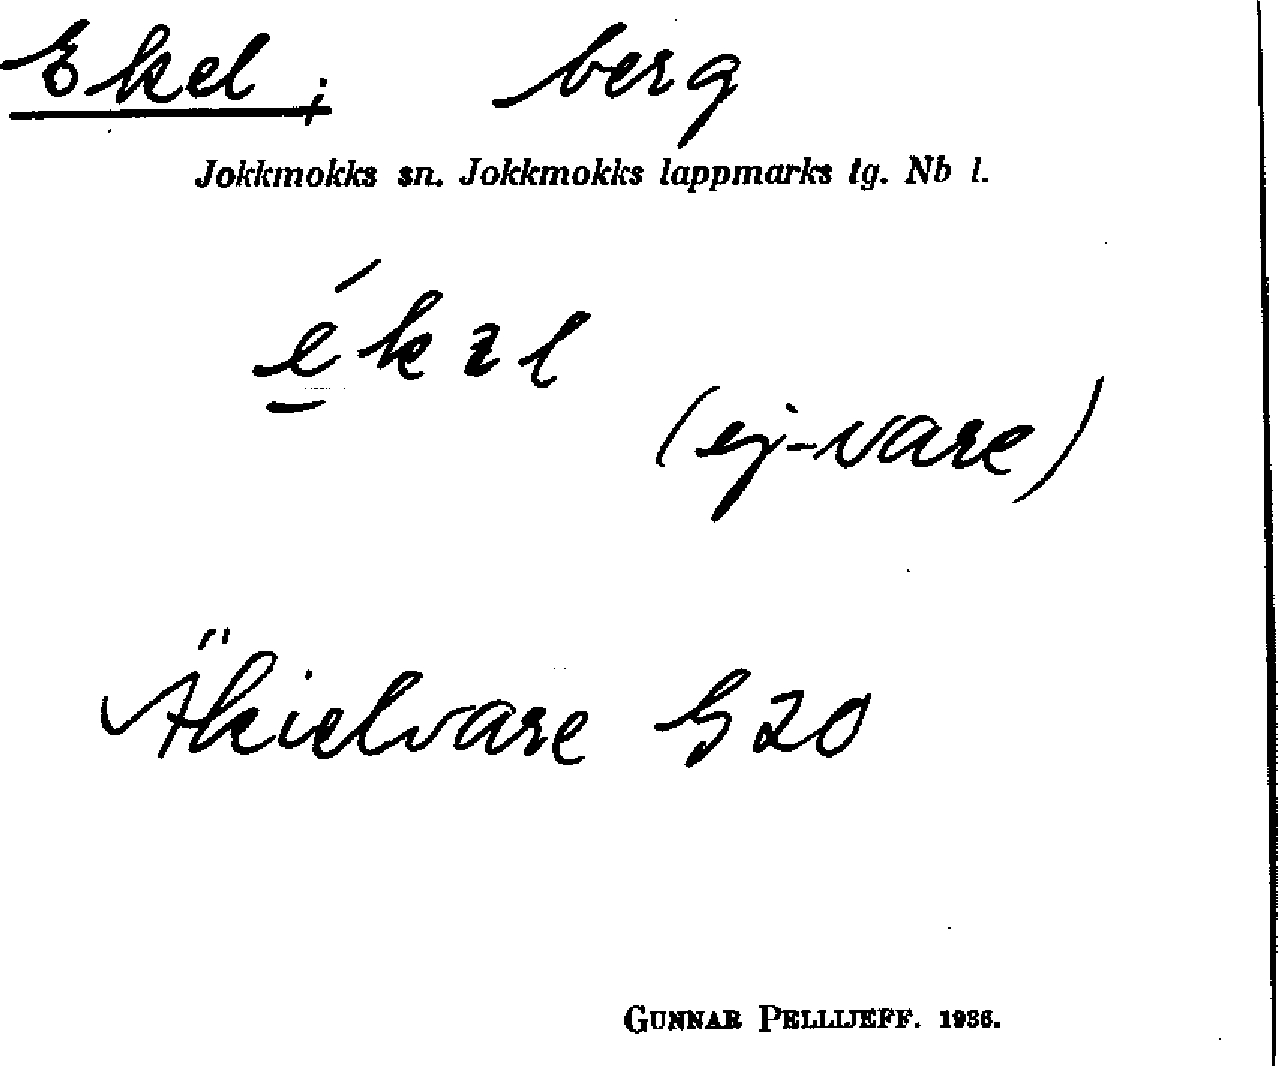 Ekel; berg
Jokkmokks sn. Jokkmokks lappmarks tg. Nb l.
ékəl
(ej -vare)
Äkielvare G20
GUNNAR PELLIJEFF. 1936.